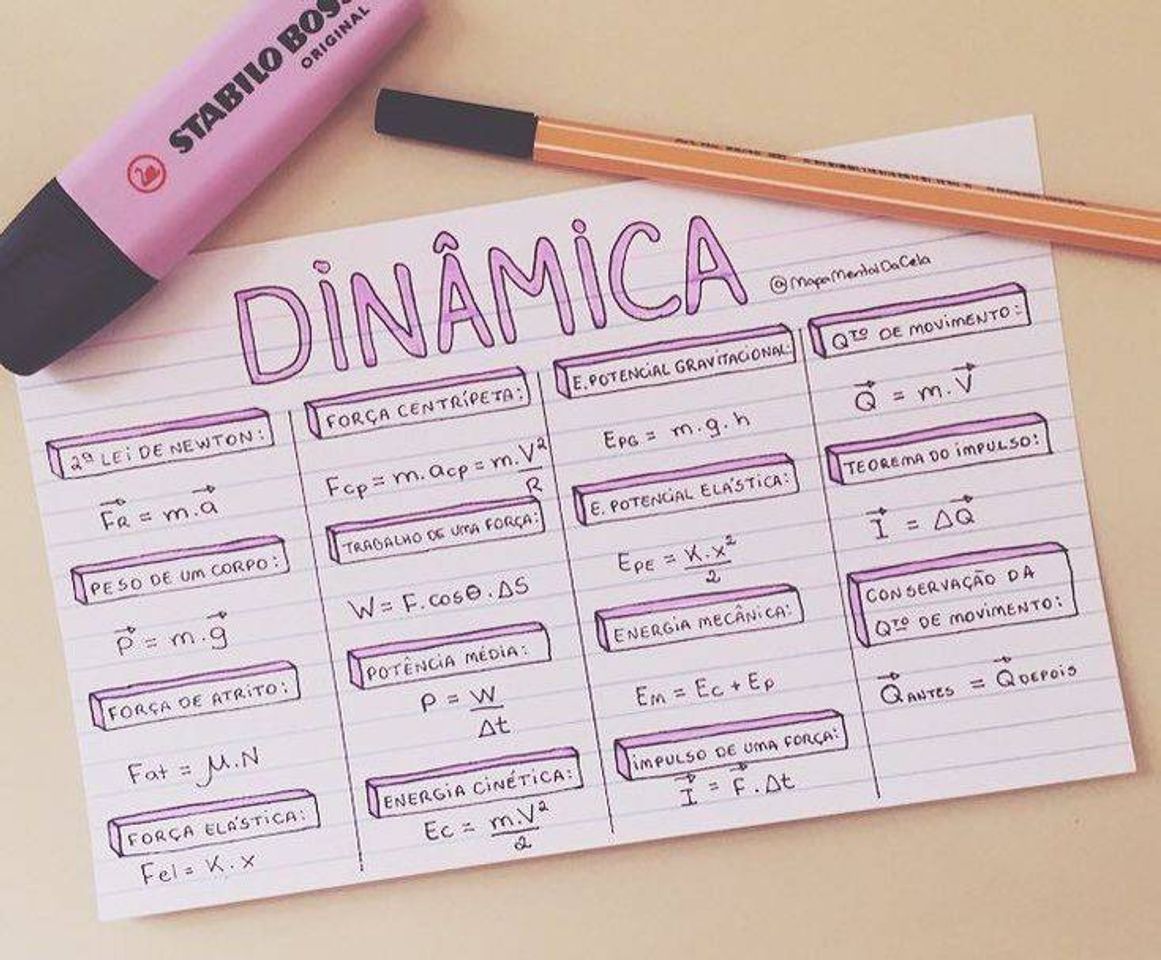 STABILO BOSS
ORIGINAL
DINÂMICA
@MapaMentalDaCela
2ª LEI DE NEWTON:
F⃗R = m.a⃗
PESO DE UM CORPO:
P⃗ = m.g⃗
FORÇA DE ATRITO:
Fat = μ.N
FORÇA ELÁSTICA:
Fel = K.x
FORÇA CENTRÍPETA:
Fcp = m.acp = m.V²/R
TRABALHO DE UMA FORÇA:
W = F.cosθ.ΔS
POTÊNCIA MÉDIA:
P = W/Δt
ENERGIA CINÉTICA:
Ec = m.V²/2
E. POTENCIAL GRAVITACIONAL:
EPG = m.g.h
E. POTENCIAL ELÁSTICA:
EPE = K.x²/2
ENERGIA MECÂNICA:
EM = EC + EP
IMPULSO DE UMA FORÇA:
I⃗ = F⃗.Δt
QTº DE MOVIMENTO:
Q⃗ = m.V⃗
TEOREMA DO IMPULSO:
I⃗ = ΔQ⃗
CONSERVAÇÃO DA
QTº DE MOVIMENTO:
Q⃗ANTES = Q⃗DEPOIS